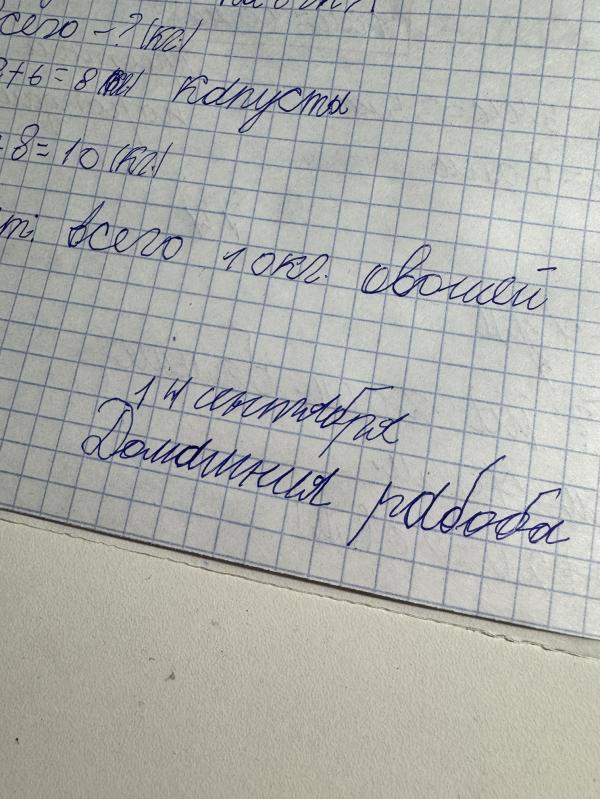 всего - ? (кг)
2+6=8 (кг) капусты
+8=10 (кг)
всего 10кг. овощей
14 сентября
Домашния рабоба